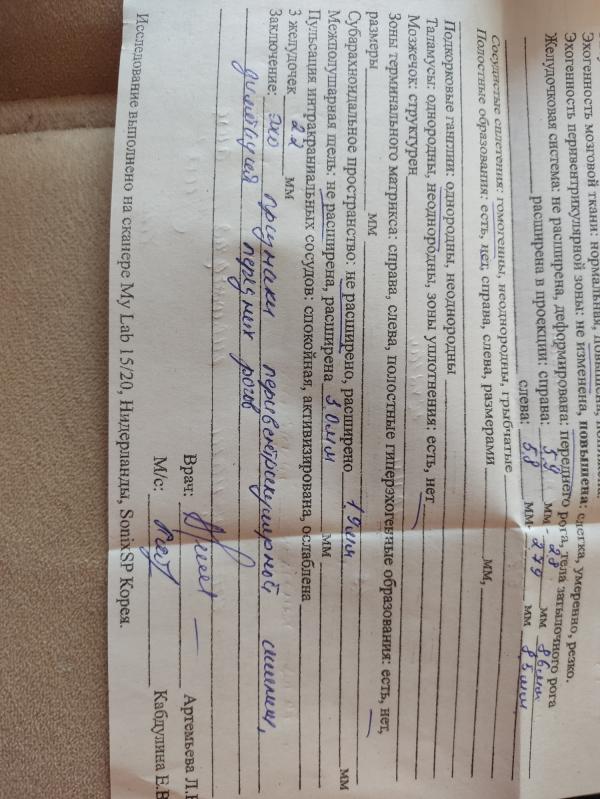 Эхогенность мозговой ткани: нормальная, повышена, понижена,
Эхогенность перивентрикулярной зоны: не изменена, повышена: слегка, умеренно, резко.
Желудочковая система: не расширена, деформирована: переднего рога, тела затылочного рога
расширена в проекции: справа: 5,9 мм - 28 мм 86мм
слева: 6.8 мм - 279 мм 85мм,
Сосудистые сплетения: гомогенны, неоднородны, грыбчатые
Полостные образования: есть, нет, справа, слева, размерами мм,
Подкорковые ганглии: однородны, неоднородны
Таламусы: однородны, неоднородны, зоны уплотнения: есть, нет
Мозжечок: структурен
Зоны герминального матрикса: справа, слева, полостные гиперэхогенные образования: есть, нет,
размеры мм
Субарахноидальное пространство: не расширено, расширено 1,9мм мм
Межполушарная щель: не расширена, расширена 3 0мм мм
Пульсация интракраниальных сосудов: спокойная, активизирована, ослаблена
3 желудочек 22 мм
Заключение: эхо признаки перивентрикулярной ишемии,
дилятация передних рогов
Врач: Артемьева Л.
М/с: Кабдулина Е.В
Исследование выполнено на сканере My Lab 15/20, Нидерланды, SonixSP Корея.